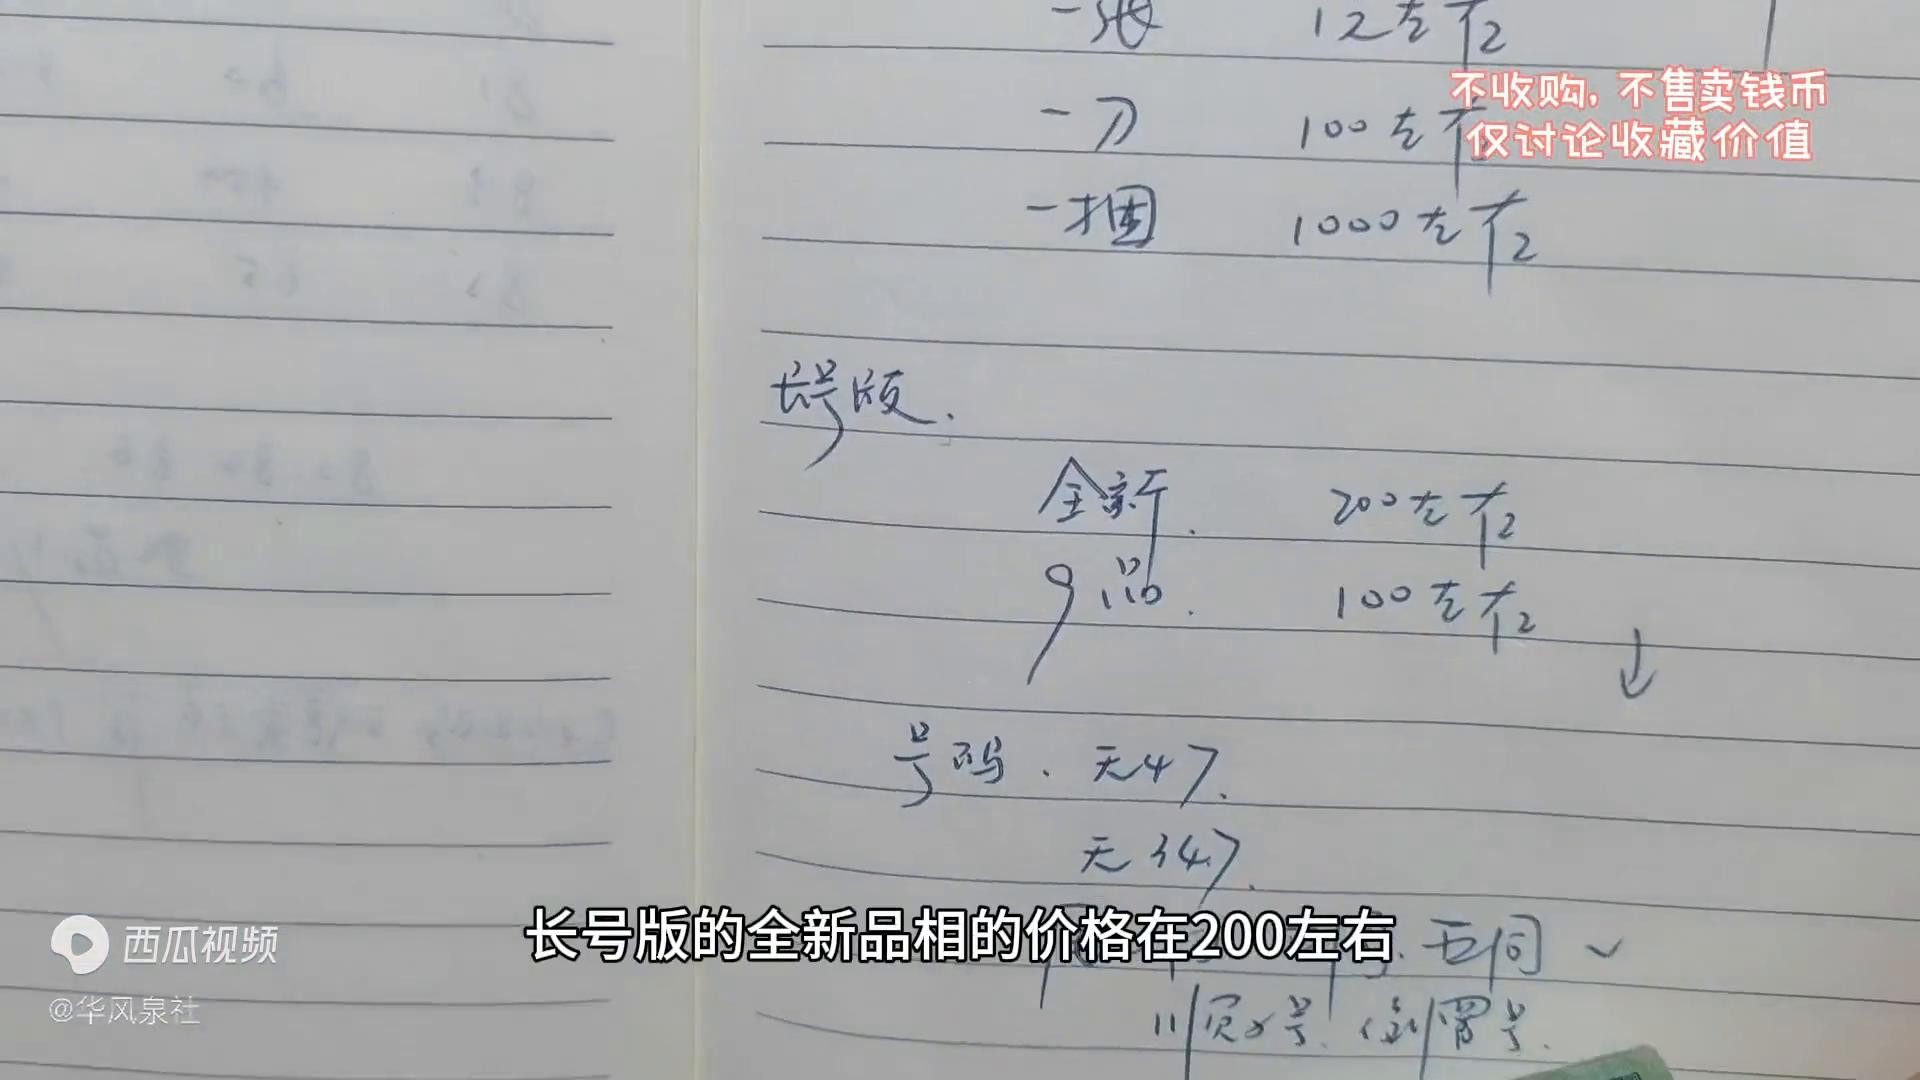 一张 12左右
不收购，不售卖钱币
一刀 100左右
仅讨论收藏价值
一捆 1000左右
长号版.
全新. 200左右
9品. 100左右
号码. 无47.
无347.
长号版的全新品相的价格在200左右
五同
顺子号. 倒置号.
西瓜视频
@华风泉社